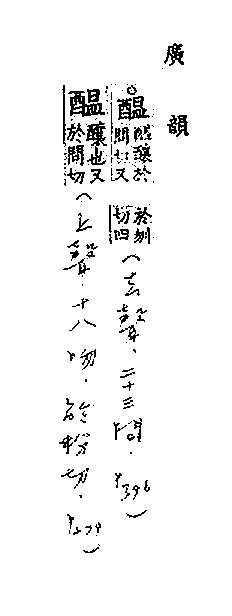 廣韻
醞醞釀於問切又於刎切四(去聲、二十三問.P396)
醞釀也又於問切(上聲.十八吻.於粉切.P279)